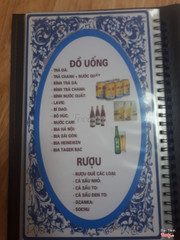 ĐỒ UỐNG
- TRÀ ĐÁ:
- TRÀ CHANH - NƯỚC
- BÌNH TRÀ ĐÁ:
- BÌNH TRÀ CHANH:
- BÌNH NƯỚC QUẤT:
- LAVIE:
- BÒ HÚC:
- NƯỚC CAM:
- BIA HÀ NỘI:
- BIA SÀI GÒN:
- BIA HEINEKEN:
- BIA TIGER BẠC:
RƯỢU
- RƯỢU QUÊ CÁC LOẠI:
- CÁ SẤU NHỎ:
- CÁ SẤU TO:
- CÁ SẤU ĐEN TO:
- VODKA:
- SOCHU: